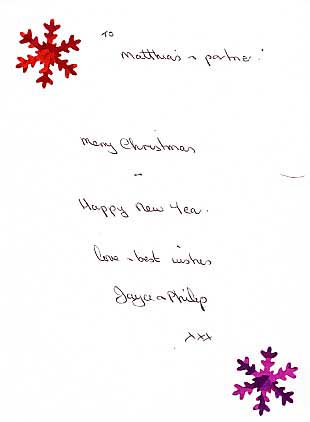 To
Matthias + partner.
Merry Christmas
-
Happy New Year.
love + best wishes
Joyce + Philip
xxx